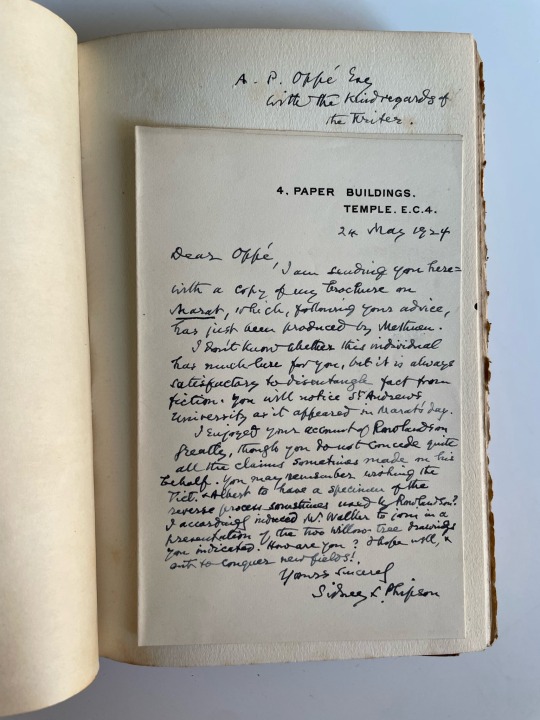 A. P. Oppé Esq
with the kind regards of
the Writer.
4, PAPER BUILDINGS.
TEMPLE. E.C.4.
24 May 1924
Dear Oppé,
I am sending you here=
with a copy of my brochure on
Marat, which, following your advice,
has just been produced by Methuen.
I don't know whether this individual
has much lure for you, but it is always
satisfactory to disentangle fact from
fiction. You will notice St Andrews
University as it appeared in Marat's day.
I enjoyed your account of Rowlandson
greatly, though you do not concede quite
all the claims sometimes made on his
behalf. You may remember wishing the
Vict. & Albert to have a specimen of the
reverse process sometimes used by Rowlandson?
I accordingly induced Mr. Walker to join in a
presentation of the two willow-tree drawings
you indicated. How are you? I hope well, &
out to conquer new fields!
Yours sincerely
Sidney L. Phipson